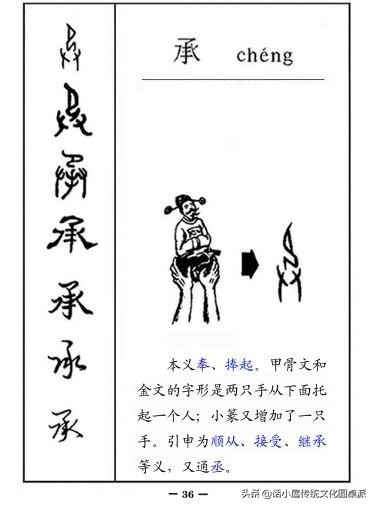 承 chéng
本义奉、捧起。甲骨文和
金文的字形是两只手从下面托
起一个人；小篆又增加了一只
手。引申为顺从、接受、继承
等义，又通丞。
承
承
承
承
— 36 —
头条@诺小屋传统文化圆桌派